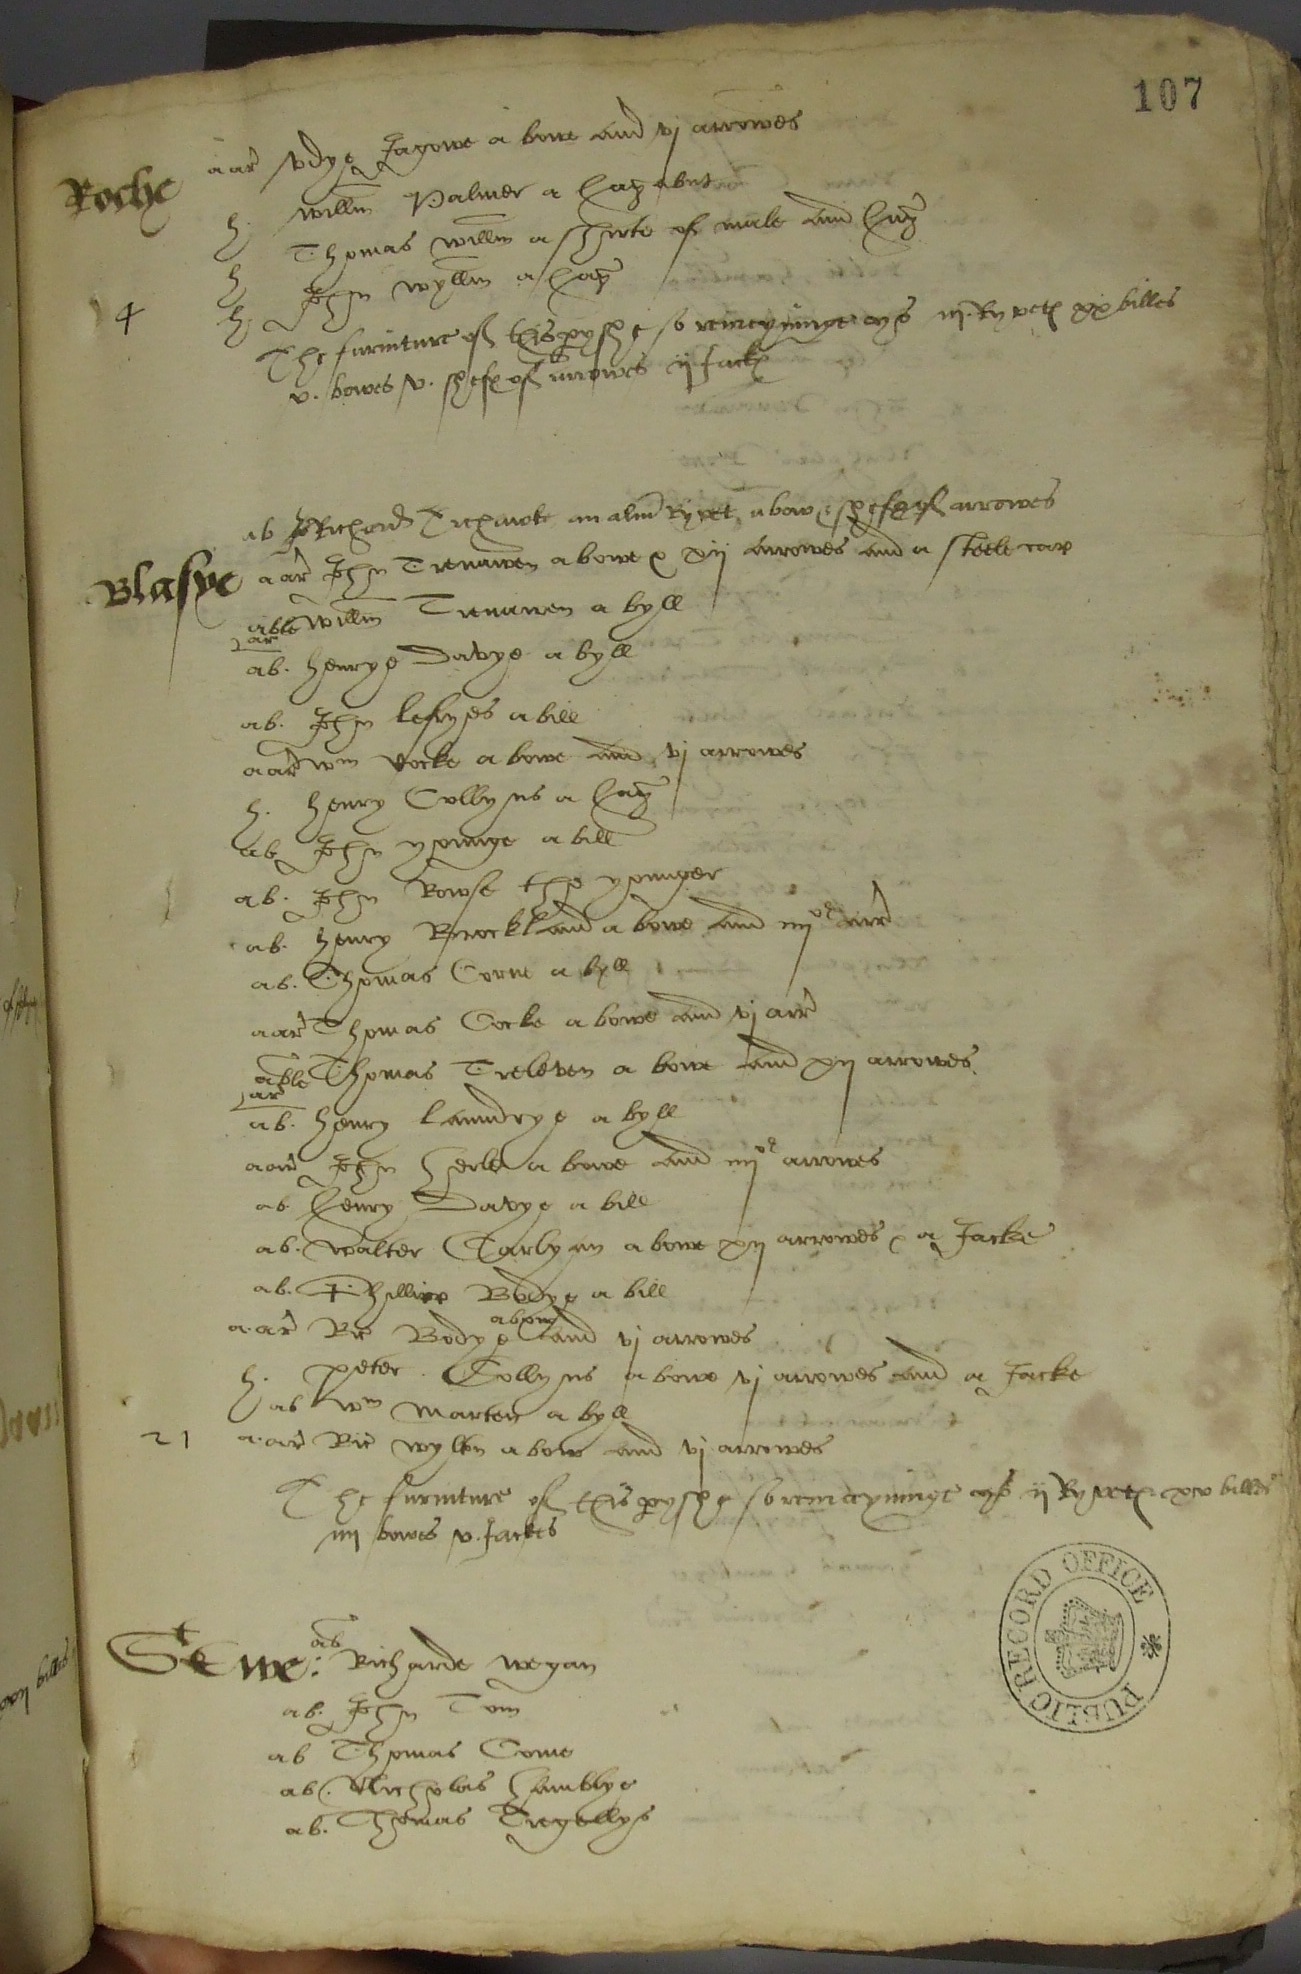 107
Roche
a ar Udye Jagowe a bowe and vj arrowes
h. Willm Palmer a hagabut
h Thomas Willm a shirte of male and hag
h. John Wyllm a hag
4
The furniture of this pyshe so remeyninge ys iij Ryvet xx billes
v. bowes v. shefe of arrowes ij Jack
Blasye
ab Richard an alm Ryvet, a bow, shefe of arrowes
a ar John Trenawen a bowe xij arrowes and a steele cap
able ar Willm Trenawen a byll
ab. henrye Davye a byll
ab. John lefryes a bill
a ar Wm Cocke a bowe and vj arrowes
h. henry Collyns a hag
ab John younge a bill
ab. John Rowse the younger
ab. henry Brockland a bowe and iiij or arr
ab. Thomas Corne a byll
a ar Thomas Cocke a bowe and vj arr
able ar Thomas Treleven a bowe and xij arrowes
ab. henry laundrye a byll
a ar John herle a bowe and iiij or arrowes
ab henry Davye a bill
ab. Walter Carlyan a bowe xij arrowes a Jacke
ab. Phillipp Bodye a bill
a ar Ric Bodye a bow and vj arrowes
h. Peter Collyns a bowe vj arrowes and a Jacke
ab Wm Marten a byll
21
a ar Ric Wyllm a bow and vj arrowes
The furniture of this pyshe so remeyninge ys ij Ryvet xv billes
iiij bowes v. Jackes
St Ewe:
ab Richarde Wegan
ab. John Tom
ab Thomas Come
ab. Nicholas hamblye
ab. Thomas Tregellys
PUBLIC RECORD OFFICE